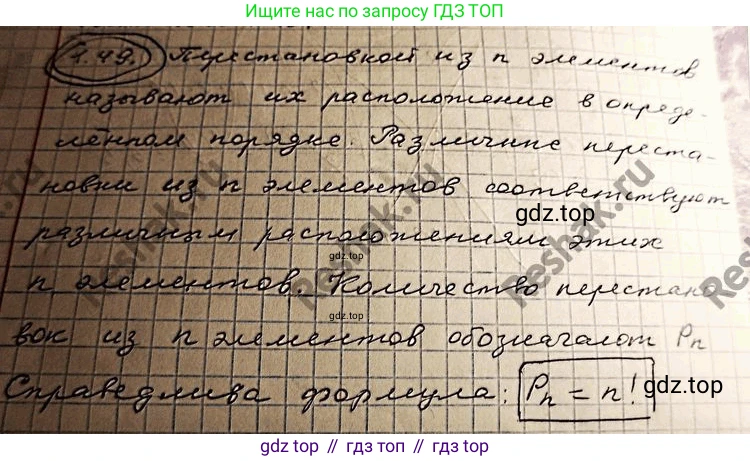 Ищите нас по запросу ГДЗ ТОП
1.49. Перестановкой из n элементов
называют их расположение в опреде-
лённом порядке. Различные переста-
новки из n элементов соответствуют
различным расположениям этих
n элементов. Количество перестано
вок из n элементов обозначают Pn
Справедлива формула: Pn = n!
gdz.top
gdz.top
gdz.top
gdz.top
Reshak.ru
Reshak.ru
Reshak.ru
Reshak.ru
gdz top // гдз топ // gdz top // гдз топ